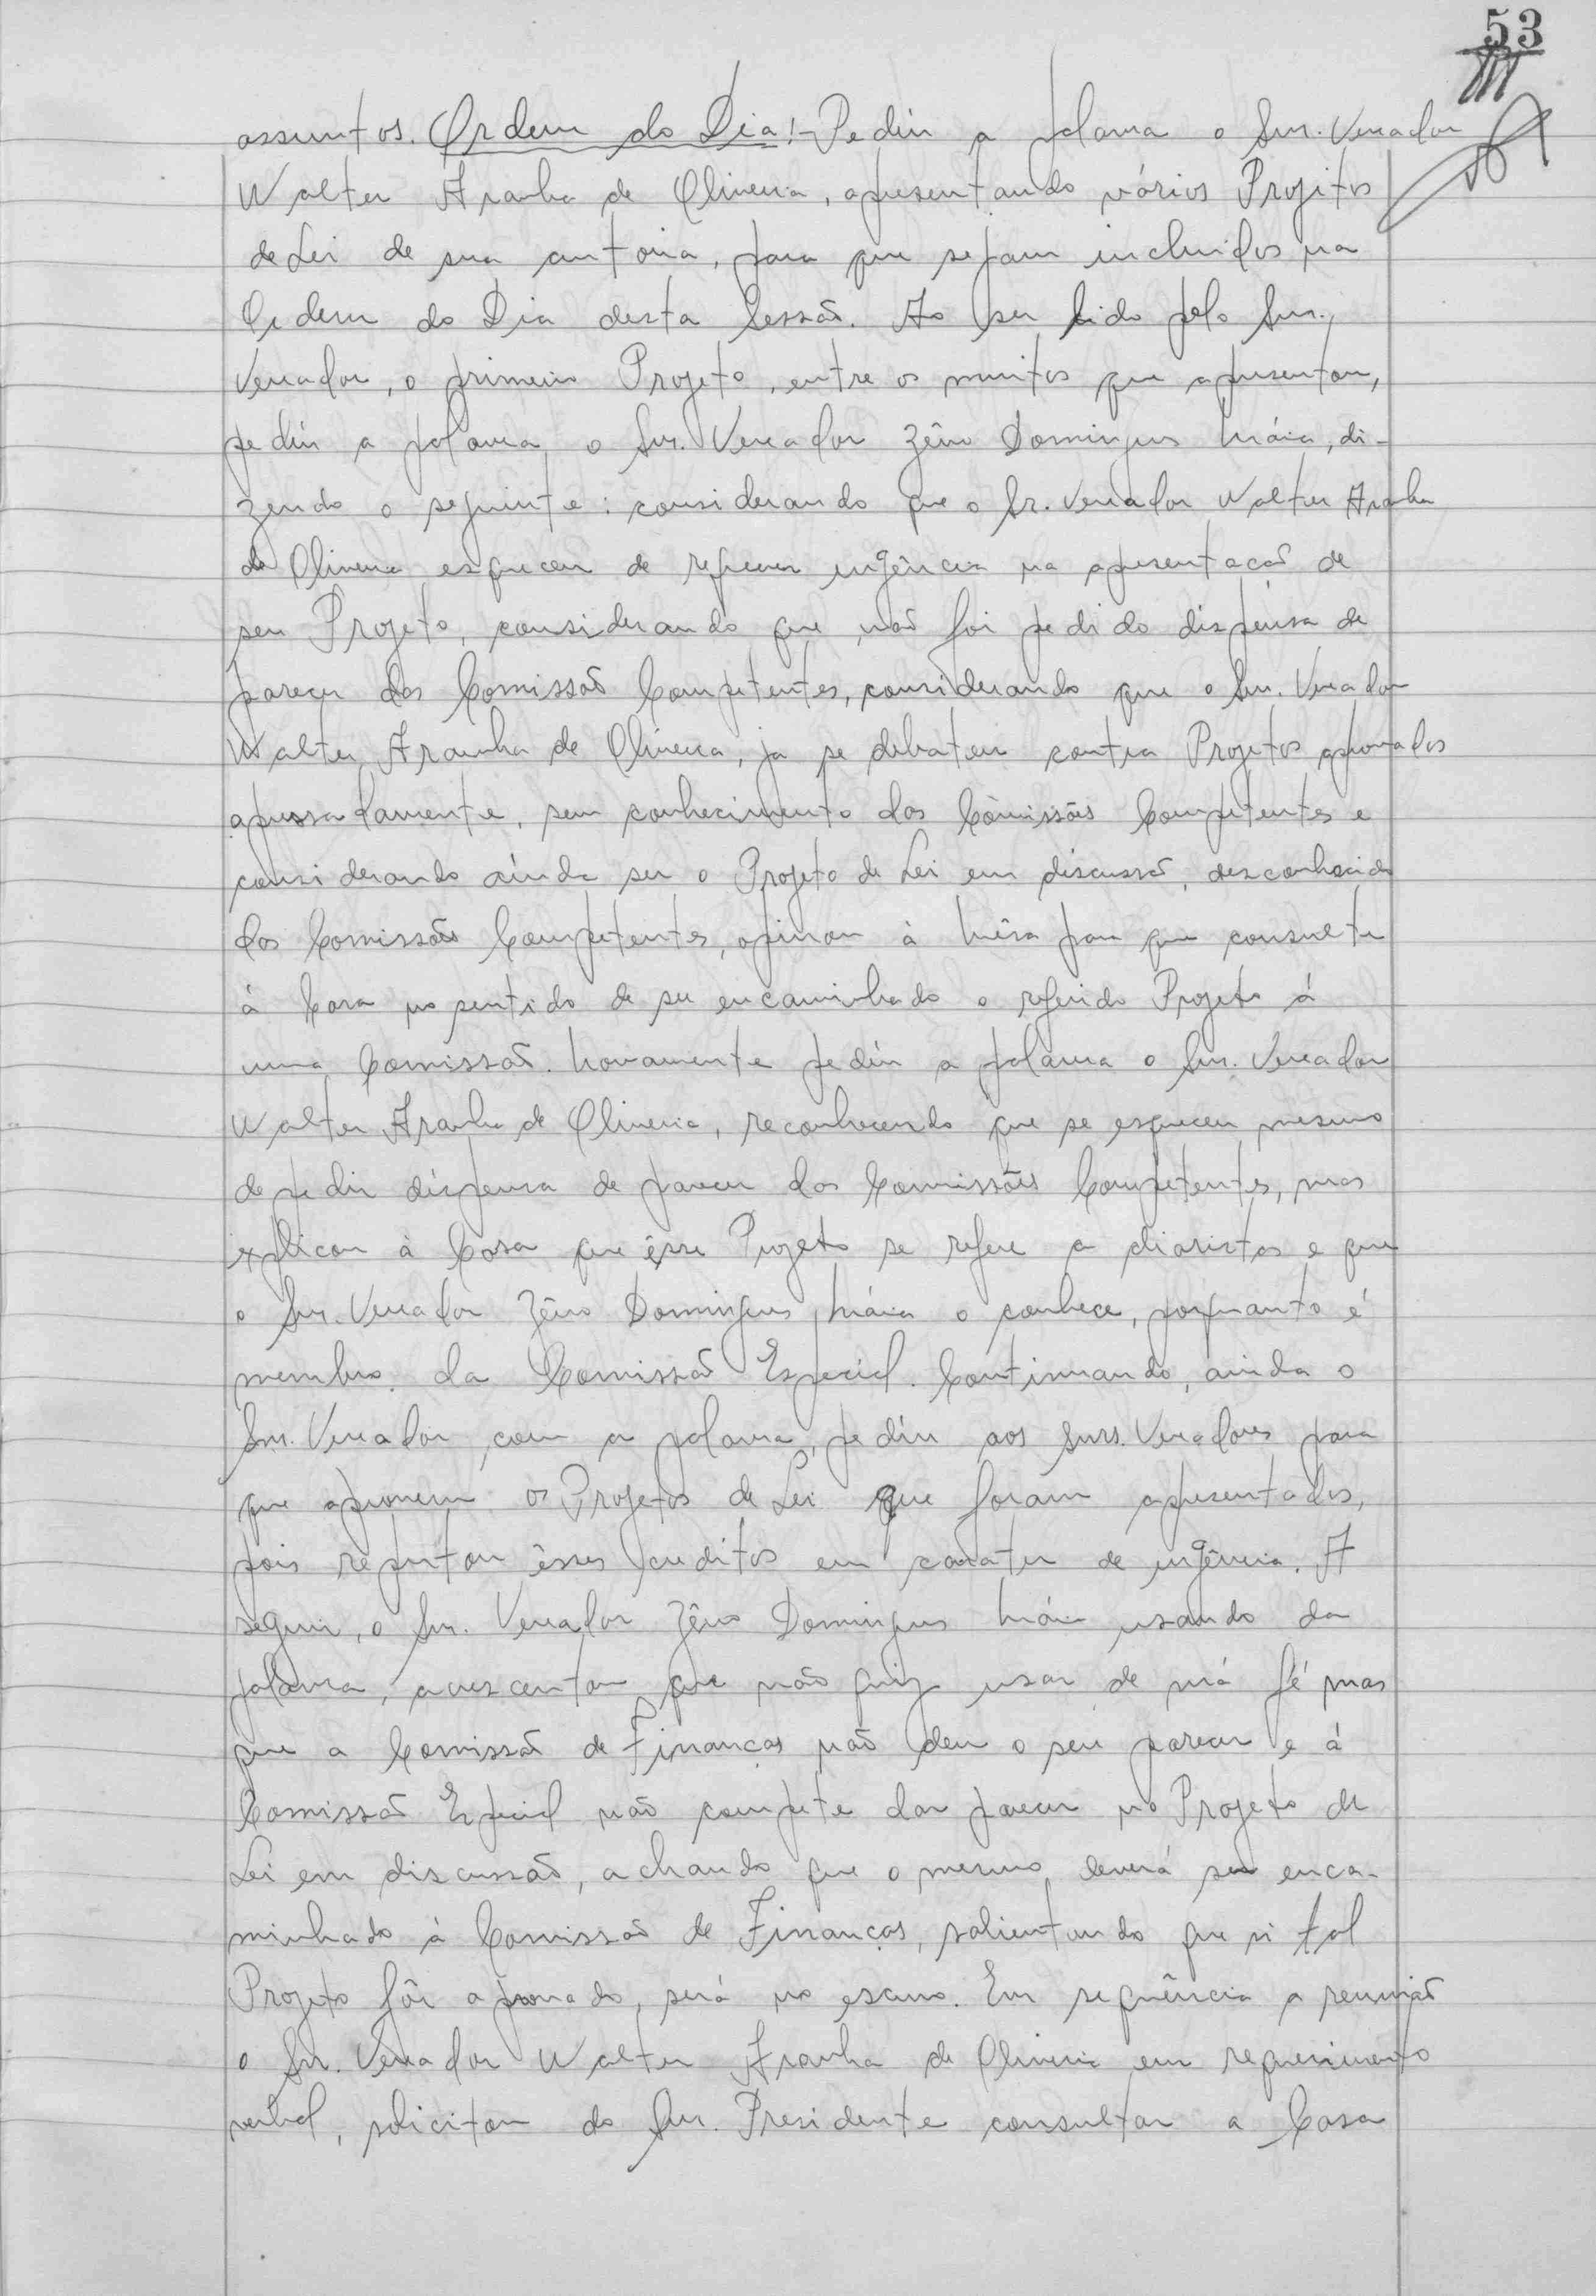 53
assuntos. Ordem do Dia:- Pediu a palavra o Snr. Vereador
Walter Aranha de Oliveira, apresentando vários Projetos
de Lei de sua autoria, para que sejam incluidos na
Ordem do Dia desta Sessão. Ao ser lido pelo Snr.
Vereador, o primeiro Projeto, entre os muitos que apresentou,
pediu a palavra o Snr. Vereador Zêno Domingues Máia, di-
zendo o seguinte: considerando que o Sr. Vereador Walter Aranha
de Oliveira esqueceu de requerer urgência na apresentação de
seu Projeto, considerando que não foi pedido dispensa de
parecer das Comissão Competentes, considerando que o Snr. Vereador
Walter Aranha de Oliveira, ja se debateu contra Projetos aprovados
apressadamente, sem conhecimento das Comissões Competentes e
considerando ainda ser o Projeto de Lei em discussão, desconhecido
das Comissões Competentes, opinou à Mêsa para que consulte
à Casa no sentido de ser encaminhado o referido Projeto á
uma Comissão. Novamente pediu a palavra o Snr. Vereador
Walter Aranha de Oliveira, reconhecendo que se esqueceu mesmo
de pedir dispensa de parecer das Comissões Competentes, mas
explicou à Casa que êsse Projeto se refere a diaristas e que
o Snr. Vereador Zêno Domingues Máia o conhece, porquanto é
membro da Comissão Especial. Continuando, ainda o
Snr. Vereador, com a palavra, pediu aos Snrs. Vereadores para
que aprovem os Projetos de Lei que foram apresentados,
pois reputou êsses creditos em carater de urgência. A
seguir, o Snr. Vereador Zêno Domingues Máia usando da
palavra, acrescentou que não quiz usar de má fé mas
que a Comissão de Finanças não deu o seu parecer e á
Comissão Especial não compete dar parecer no Projeto de
Lei em discussão, achando que o mesmo deverá ser enca-
minhado à Comissão de Finanças, salientando que si tal
Projeto fôr aprovado, será no escuro. Em sequência a reunião
o Snr. Vereador Walter Aranha de Oliveira em requerimento
verbal, solicitou do Snr. Presidente consultar a Casa